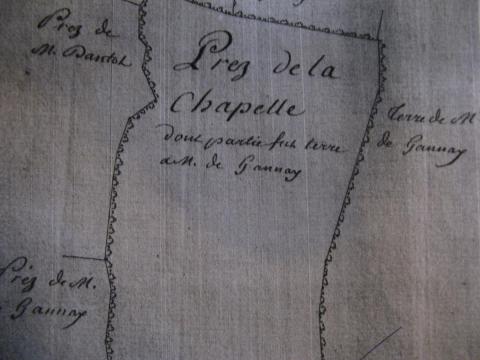 Prez de
M. Dantol
Prez de la
Chapelle
dont partie fut terre
a M. de Gannay
Terre de M
de Gannay
Préz de M.
Gannay